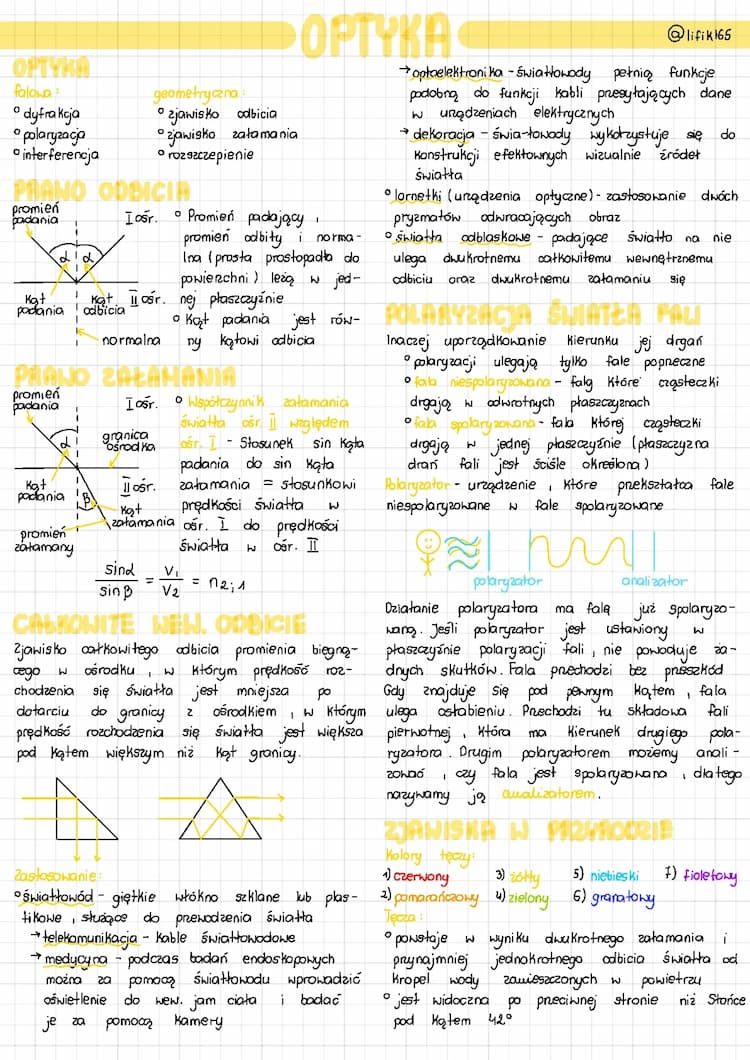 OPTYKA
@lifik165
OPTYKA
falowa:
° dyfrakcja
° polaryzacja
° interferencja
geometryczna:
° zjawisko odbicia
° zjawisko załamania
° rozszczepienie
PRAWO ODBICIA
promień
padania
I ośr.
α α
kąt
padania
kąt
odbicia
II ośr.
normalna
° Promień padający,
promień odbity i norma-
lna (prosta prostopadła do
powierzchni) leżą w jed-
nej płaszczyźnie
° kąt padania jest rów-
ny kątowi odbicia
PRAWO ZAŁAMANIA
promień
padania
I ośr.
α
granica
ośrodka
kąt
padania
II ośr.
β
kąt
załamania
promień
załamany
° Współczynnik załamania
światła ośr. II względem
ośr. I - Stosunek sin kąta
padania do sin kąta
załamania = stosunkowi
prędkości światła w
ośr. I do prędkości
światła w ośr. II
sinα / sinβ = V₁ / V₂ = n₂;₁
CAŁKOWITE WEW. ODBICIE
Zjawisko całkowitego odbicia promienia biegną-
cego w ośrodku, w którym prędkość roz-
chodzenia się światła jest mniejsza po
dotarciu do granicy z ośrodkiem, w którym
prędkość rozchodzenia się światła jest większa
pod kątem większym niż kąt granicy.
Zastosowanie:
° światłowód - giętkie włókno szklane lub plas-
tikowe, służące do przewodzenia światła
→ telekomunikacja - kable światłowodowe
→ medycyna - podczas badań endoskopowych
można za pomocą światłowodu wprowadzić
oświetlenie do wew. jam ciała i badać
je za pomocą kamery
→ optoelektronika - światłowody pełnią funkcje
podobną do funkcji kabli przesyłających dane
w urządzeniach elektrycznych
→ dekoracja - świa-łowody wykorzystuje się do
konstrukcji efektownych wizualnie źródeł
światła
° lornetki (urządzenia optyczne) - zastosowanie dwóch
pryzmatów odwracających obraz
° światła odblaskowe - padające światło na nie
ulega dwukrotnemu całkowitemu wewnętrznemu
odbiciu oraz dwukrotnemu załamaniu się
POLARYZACJA ŚWIATŁA FALI
Inaczej uporządkowanie kierunku jej drgań
° polaryzacji ulegają tylko fale poprzeczne
° fala niespolaryzowana - falą które cząsteczki
drgają w odwrotnych płaszczyznach
° fala spolaryzowana - fala której cząsteczki
drgają w jednej płaszczyźnie (płaszczyzna
drań fali jest ściśle określona)
Polaryzator - urządzenie, które przekształca fale
niespolaryzowane w fale spolaryzowane
polaryzator
analizator
Działanie polaryzatora ma falę już spolaryzo-
waną. Jeśli polaryzator jest ustawiony w
płaszczyźnie polaryzacji fali, nie powoduje ża-
dnych skutków. Fala przechodzi bez przeszkód
Gdy znajduje się pod pewnym kątem, fala
ulega osłabieniu. Przechodzi tu składowa fali
pierwotnej, która ma kierunek drugiego pola-
ryzatora. Drugim polaryzatorem możemy anali-
zować, czy fala jest spolaryzowana, dlatego
nazywamy ją analizatorem.
ZJAWISKA W PRZYRODZIE
Kolory tęczy:
1) czerwony
2) pomarańczowy
3) żółty
4) zielony
5) niebieski
6) granatowy
7) fioletowy
Tęcza:
° powstaje w wyniku dwukrotnego załamania i
przynajmniej jednokrotnego odbicia światła od
kropel wody zawieszczonych w powietrzu
° jest widoczna po przeciwnej stronie niż Słońce
pod kątem 42°